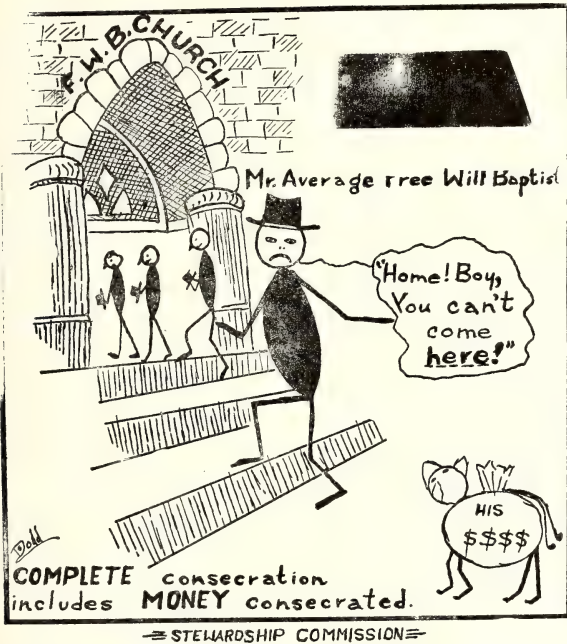 F.W.B. CHURCH
Mr. Average Free Will Baptist
"Home! Boy,
You can't
come
here!"
HIS
$$$$
Dodd
COMPLETE consecration
includes MONEY consecrated.
STEWARDSHIP COMMISSION